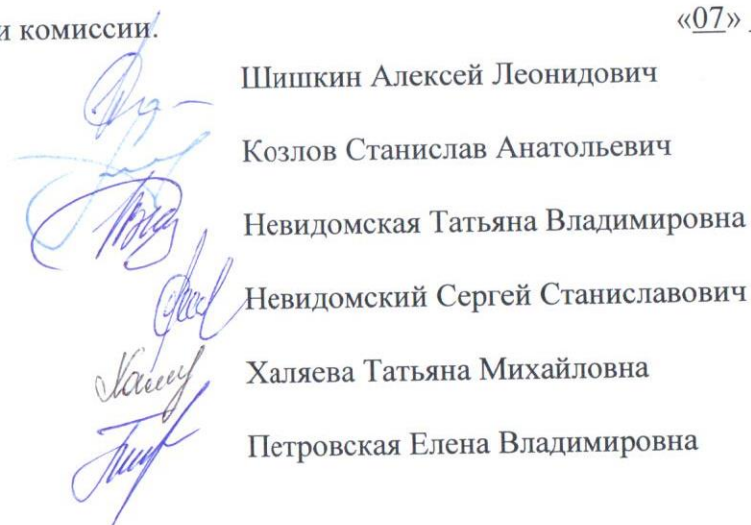 и комиссии. «07»
Шишкин Алексей Леонидович
Козлов Станислав Анатольевич
Невидомская Татьяна Владимировна
Невидомский Сергей Станиславович
Халяева Татьяна Михайловна
Петровская Елена Владимировна